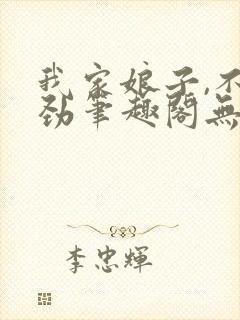 我家娘子,不
劲笔趣阁无
李忠辉